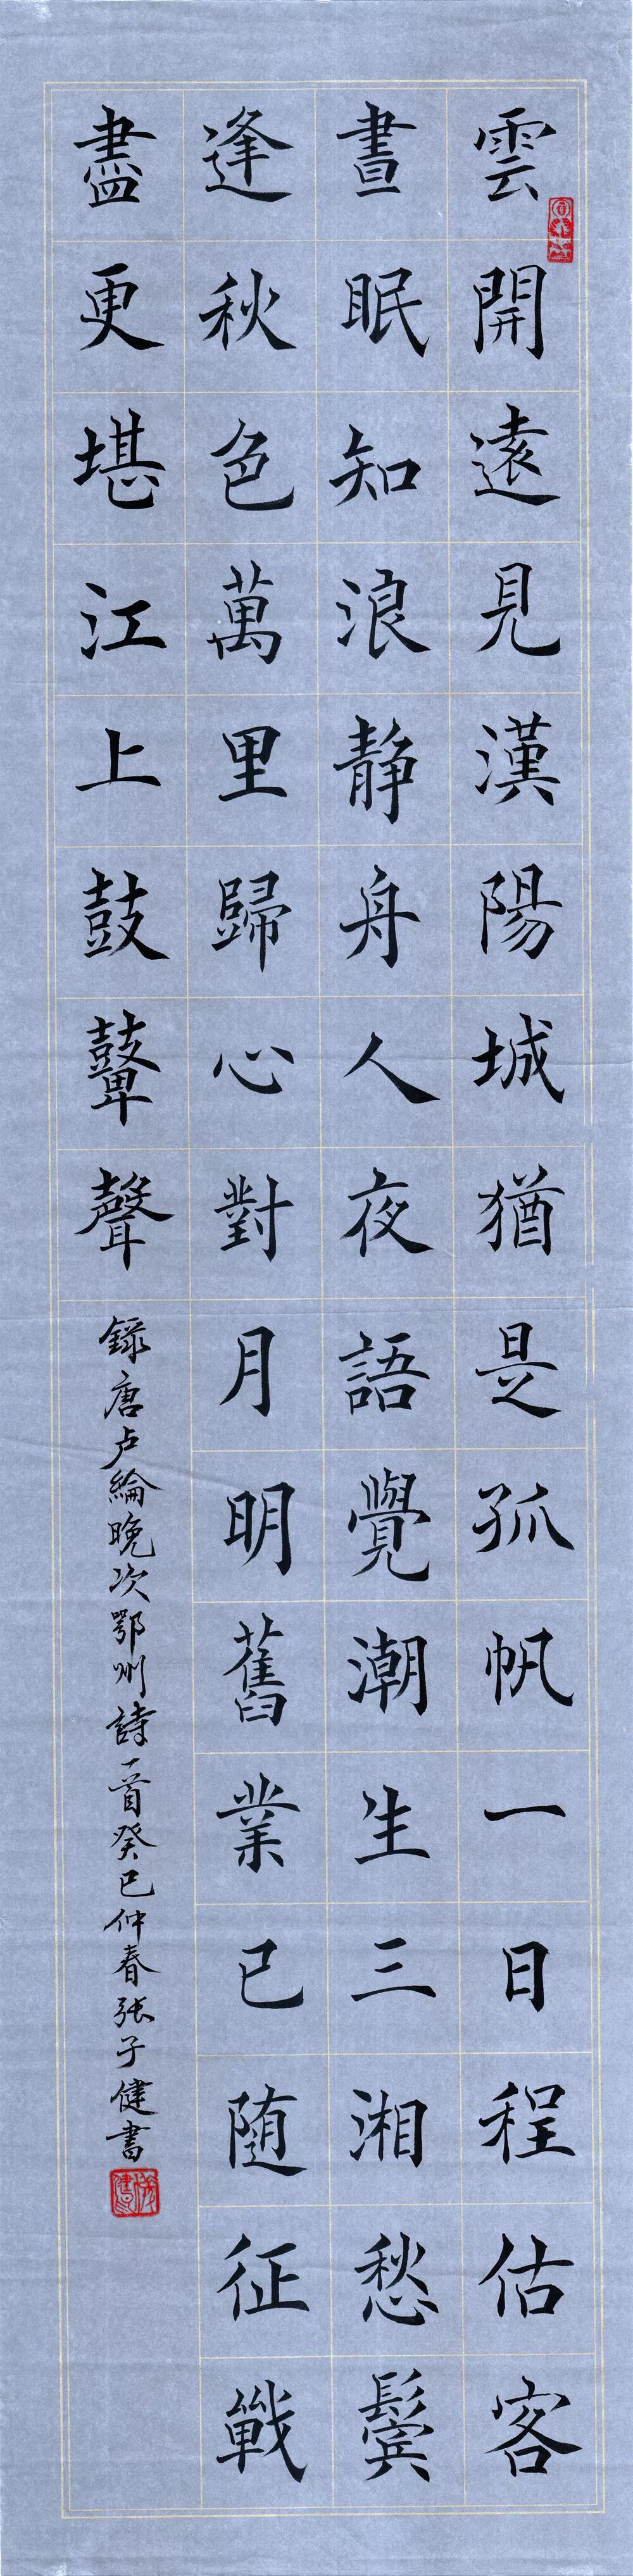 雲開遠見漢陽城猶是孤帆一日程估客
晝眠知浪静舟人夜語覺潮生三湘愁鬢
逢秋色萬里歸心對月明舊業已随征戰
盡更堪江上鼓鼙聲
録唐卢綸晚次鄂州詩一首癸巳仲春张子健書